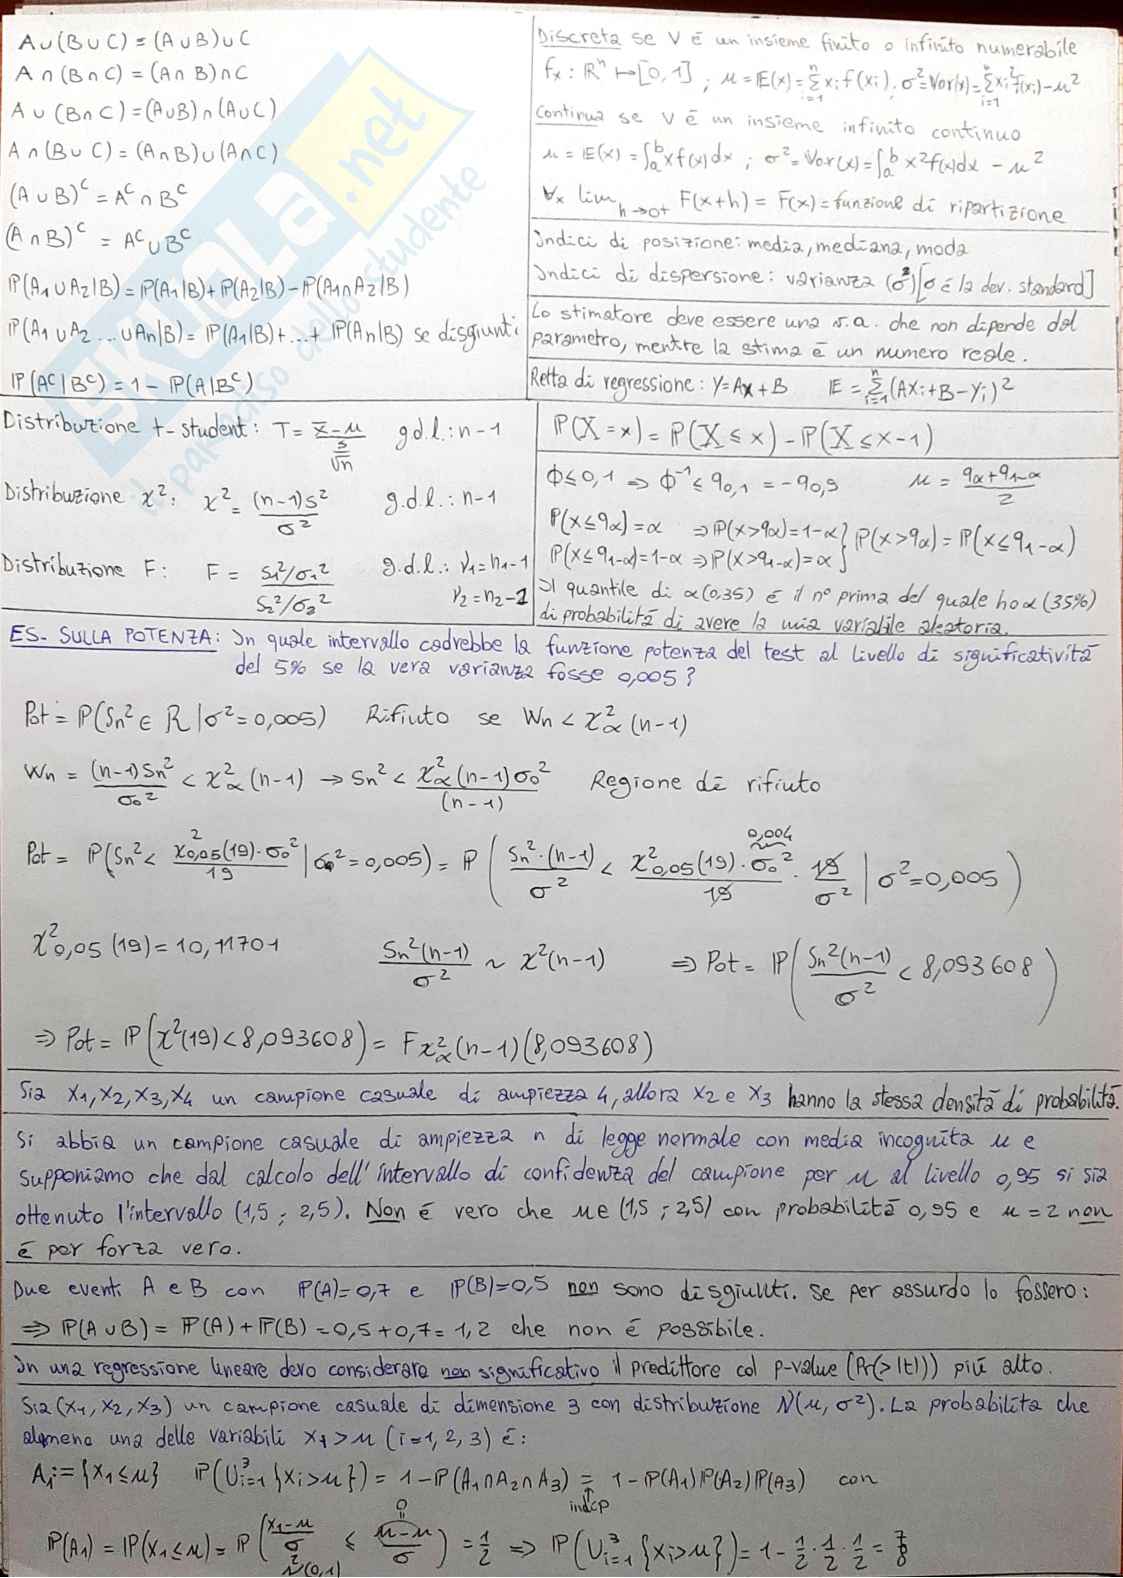 A∪(B∪C) = (A∪B)∪C
A∩(B∩C) = (A∩B)∩C
A∪(B∩C) = (A∪B)∩(A∪C)
A∩(B∪C) = (A∩B)∪(A∩C)
(A∪B)ᶜ = Aᶜ∩Bᶜ
(A∩B)ᶜ = Aᶜ∪Bᶜ
ℙ(A₁∪A₂|B) = ℙ(A₁|B)+ℙ(A₂|B)-ℙ(A₁∩A₂|B)
ℙ(A₁∪A₂...∪Aₙ|B) = ℙ(A₁|B)+...+ℙ(Aₙ|B) se disgiunti
ℙ(Aᶜ|Bᶜ) = 1-ℙ(A|Bᶜ)
Discreta se V è un insieme finito o infinito numerabile
fₓ: ℝⁿ ↦ [0,1] ; μ = 𝔼(x) = Σᵢ₌₁ⁿ xᵢ f(xᵢ) ; σ² = Var(x) = Σᵢ₌₁ⁿ xᵢ² f(xᵢ) - μ²
Continua se V è un insieme infinito continuo
μ = 𝔼(x) = ∫ₐᵇ x f(x) dx ; σ² = Var(x) = ∫ₐᵇ x² f(x) dx - μ²
∀x lim h→0⁺ F(x+h) = F(x) = funzione di ripartizione
Indici di posizione: media, mediana, moda
Indici di dispersione: varianza (σ²) [σ è la dev. standard]
Lo stimatore deve essere una v.a. che non dipende dal
parametro, mentre la stima è un numero reale.
Retta di regressione: Y=Ax+B 𝔼 = Σᵢ₌₁ⁿ (Axᵢ+B-yᵢ)²
Distribuzione t-student: T = (x̄-μ)/(s/√n) g.d.l.: n-1
Distribuzione χ²: χ² = (n-1)s²/σ² g.d.l.: n-1
Distribuzione F: F = (s₁²/σ₁²)/(s₂²/σ₂²) g.d.l.: γ₁=n₁-1
γ₂=n₂-1
ℙ(X=x) = ℙ(X≤x) - ℙ(X≤x-1)
Φ≤0,1 ⇒ Φ⁻¹≤q₀,₁ = -q₀,₉ μ = (qα+q₁₋α)/2
ℙ(x≤qα)=α ⇒ ℙ(x>qα)=1-α
ℙ(x≤q₁₋α)=1-α ⇒ ℙ(x>q₁₋α)=α } ℙ(x>qα) = ℙ(x≤q₁₋α)
Il quantile di α(0,35) è il n° prima del quale ho α(35%)
di probabilità di avere la mia variabile aleatoria.
ES. SULLA POTENZA: In quale intervallo cadrebbe la funzione potenza del test al livello di significatività
del 5% se la vera varianza fosse 0,005?
Pot = ℙ(Sn² ∈ R | σ²=0,005) Rifiuto se Wn < χ²α(n-1)
Wn = (n-1)Sn²/σ₀² < χ²α(n-1) → Sn² < χ²α(n-1)σ₀²/(n-1) Regione di rifiuto
Pot = ℙ(Sn² < χ²0,05(19)·σ₀²/19 | σ²=0,005) = ℙ(Sn²·(n-1)/σ² < χ²0,05(19)·σ₀²/19 · 19/σ² | σ²=0,005)
0,004
χ²0,05(19) = 10,11701 Sn²(n-1)/σ² ~ χ²(n-1) ⇒ Pot = ℙ(Sn²(n-1)/σ² < 8,093608)
⇒ Pot = ℙ(χ²(19) < 8,093608) = Fχ²α(n-1)(8,093608)
Sia x₁,x₂,x₃,x₄ un campione casuale di ampiezza 4, allora x₂ e x₃ hanno la stessa densità di probabilità.
Si abbia un campione casuale di ampiezza n di legge normale con media incognita μ e
supponiamo che dal calcolo dell'intervallo di confidenza del campione per μ al livello 0,95 si sia
ottenuto l'intervallo (1,5 ; 2,5). Non è vero che μ∈(1,5 ; 2,5) con probabilità 0,95 e μ=2 non
è per forza vero.
Due eventi A e B con ℙ(A)=0,7 e ℙ(B)=0,5 non sono disgiunti. Se per assurdo lo fossero:
⇒ ℙ(A∪B) = ℙ(A)+ℙ(B) = 0,5+0,7 = 1,2 che non è possibile.
In una regressione lineare devo considerare non significativo il predittore col p-value (Pr(>|t|)) più alto.
Sia (x₁,x₂,x₃) un campione casuale di dimensione 3 con distribuzione N(μ,σ²). La probabilità che
almeno una delle variabili x₁>μ (i=1,2,3) è:
Aᵢ={x₁≤μ} ℙ(∪ᵢ₌₁³{xᵢ>μ}) = 1-ℙ(A₁∩A₂∩A₃) = 1-ℙ(A₁)ℙ(A₂)ℙ(A₃) con
↑
indep
ℙ(A₁) = ℙ(x₁≤μ) = ℙ((x₁-μ)/σ ≤ (μ-μ)/σ) = 1/2 ⇒ ℙ(∪ᵢ₌₁³{xᵢ>μ}) = 1-1/2·1/2·1/2 = 7/8
0
N(0,1)
SKUOLA.net
il paradiso dello studente